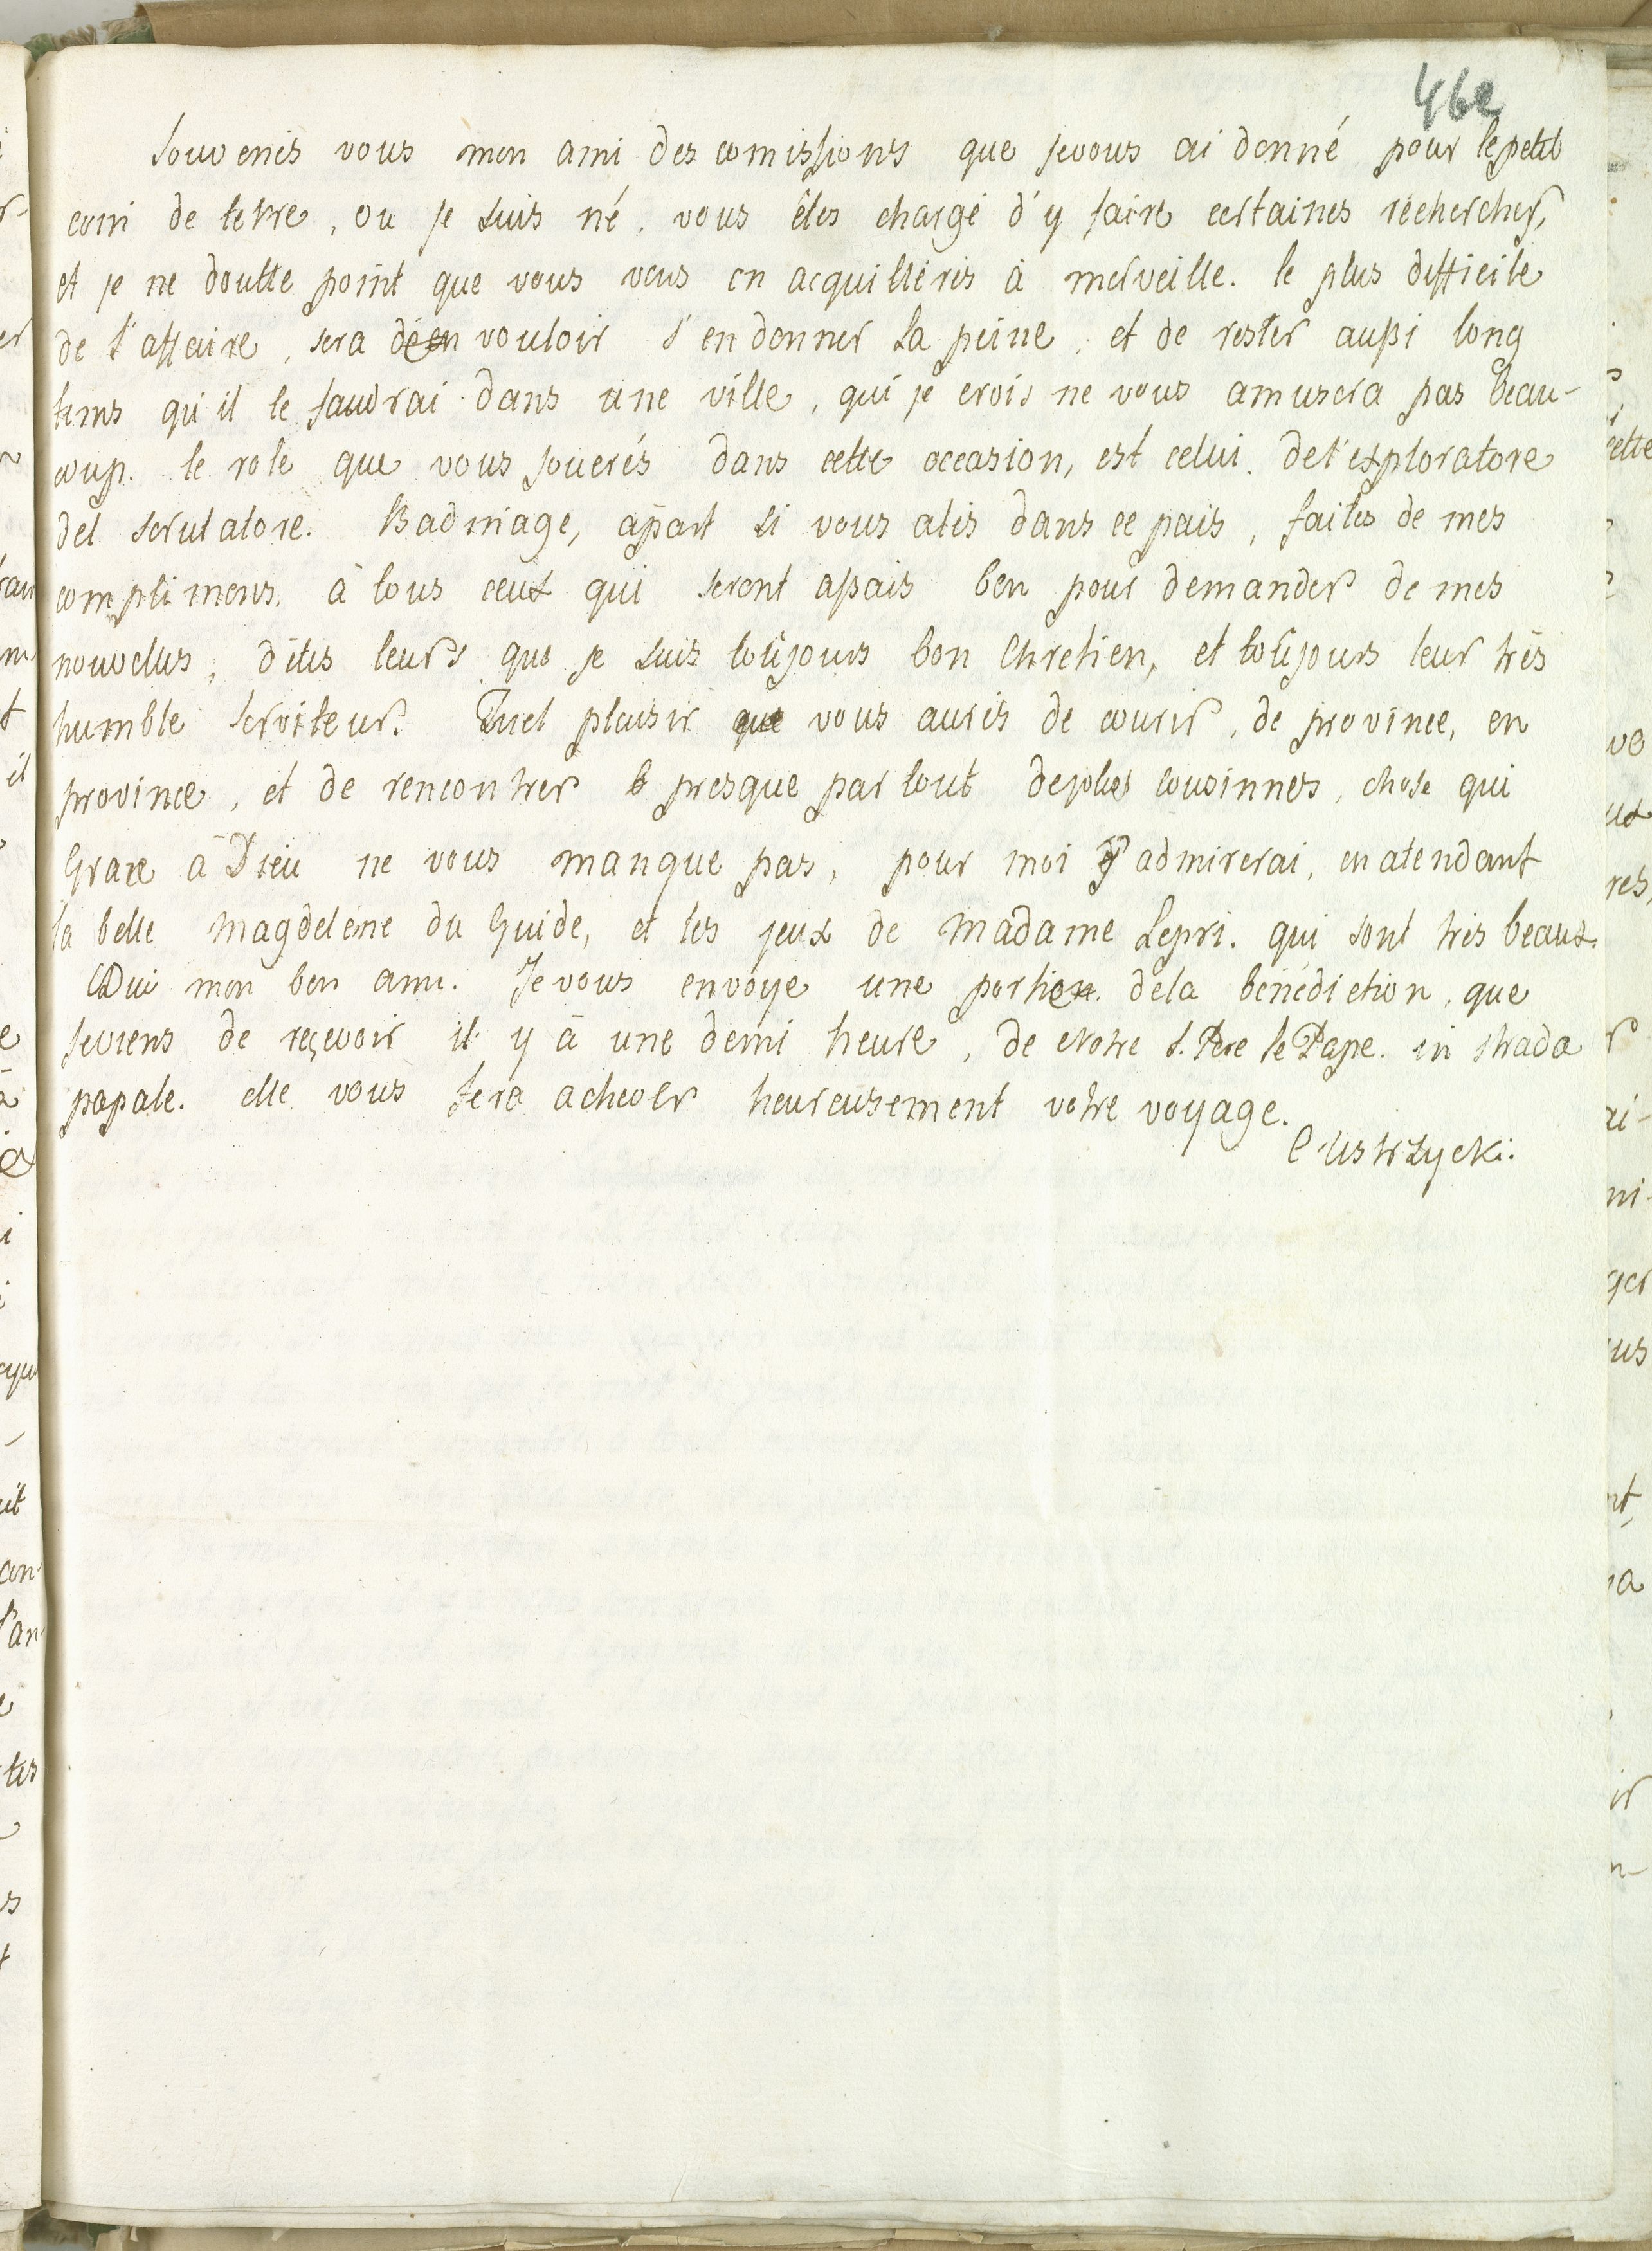 462
Souvenés vous mon ami des comissions que je vous ai donné pour le petit
coin de terre, ou je suis né, vous êtes chargé d'y faire certaines réchercher,
et je ne doutte point que vous vous en acquitterés à merveille. le plus difficile
de l'affaire, sera de vouloir s'en donner la peine, et de rester aussi long
tems qu'il le faudrai dans une ville, qui je crois ne vous amusera pas beau-
coup. le role que vous jouerés dans cette occasion, est celui. del'exploratore
del scrutatore. Badinage, apart si vous alés dans ce païs, faites de mes
complimens, à tous ceux qui seront assais bon pour demander de mes
nouvelles, dites leurs que je suis toûjours bon Chretien, et toûjours leur très
humble serviteur. Quel plaisir que vous aurés de courir, de province, en
province, et de rencontrer presque par tout de jolies cousinnes, chose qui
Grace à Dieu ne vous manque pas, pour moi j'admirerai, en atendant
la belle Magdelène du Guide, et les jeux de Madame Lepri. qui sont très beaux.
Oui mon bon ami. Je vous envoye une portion dela bénédiction, que
je viens de reçevoir il y à une demi heure, de Notre S. Pere le Pape. in strada
papale. elle vous fera achever heureusement votre voyage.
C Ustrzycki.